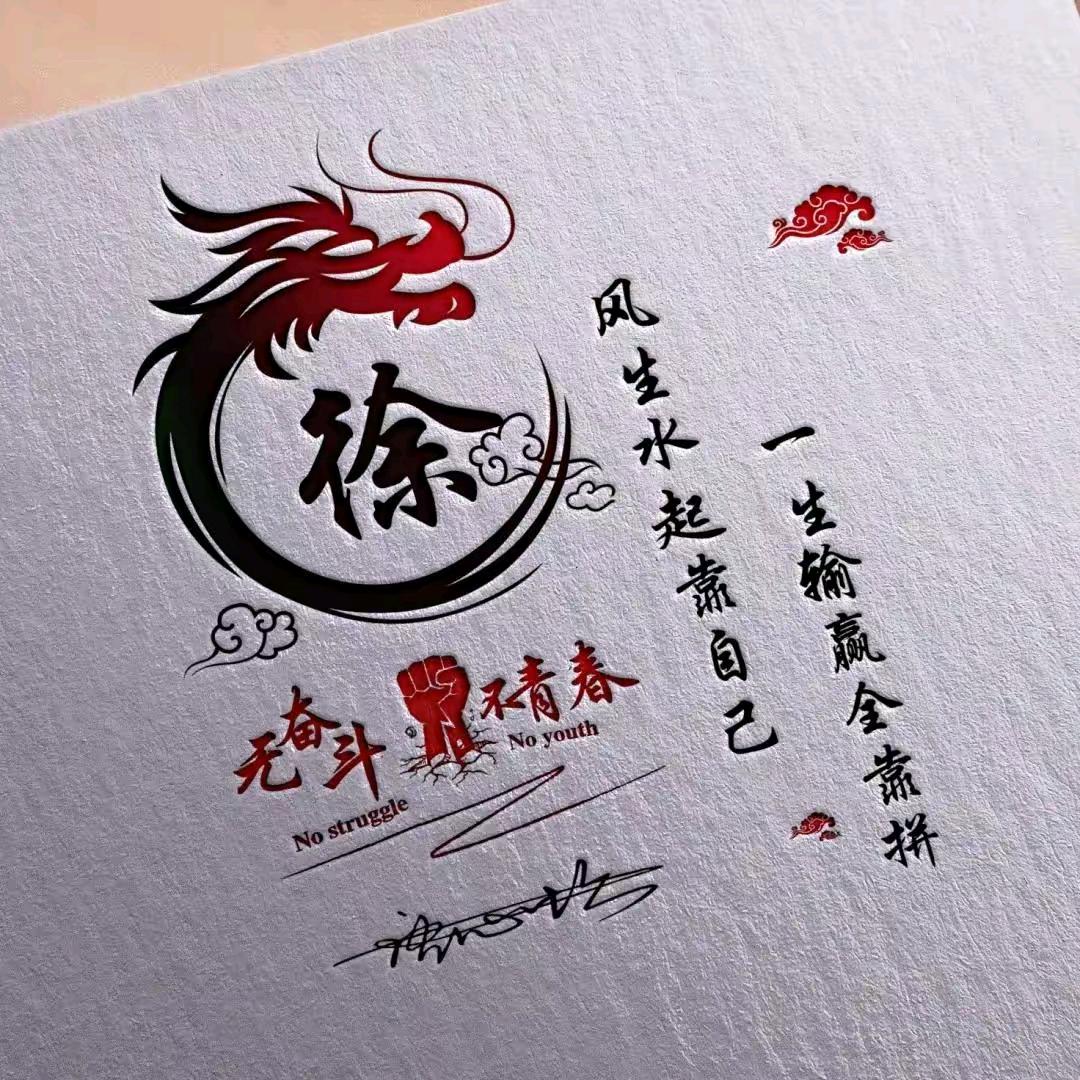 徐
一生输赢全靠拼
风生水起靠自己
无奋斗 不青春
No struggle No youth